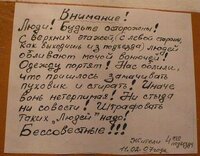 Внимание!
Люди! Будьте осторожны!
С верхних этажей (с левой стороны,
как выходишь из подъезда) людей
обливают мочой вонючей!
Одежду портят! Нас облили,
что пришлось замачивать
пуховик и стирать! Иначе
вонь нетерпимая! Ни стыда
ни совести! Штрафовать
таких „Людей" надо!
Бессовестные!!!
Жители
подъезда
11.02.07 года